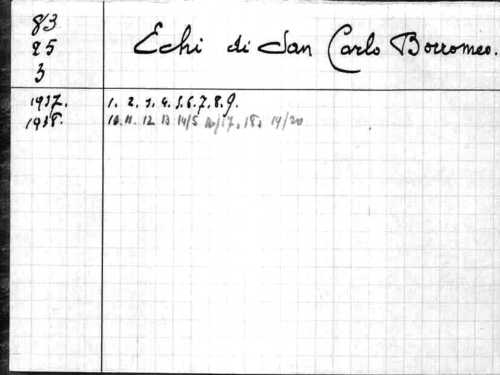 83
25
3
Echi di San Carlo Borromeo.
1937. 1. 2. 3. 4. 5. 6. 7. 8. 9.
1938. 10. 11. 12 13 14/5 16/17. 18. 19/20